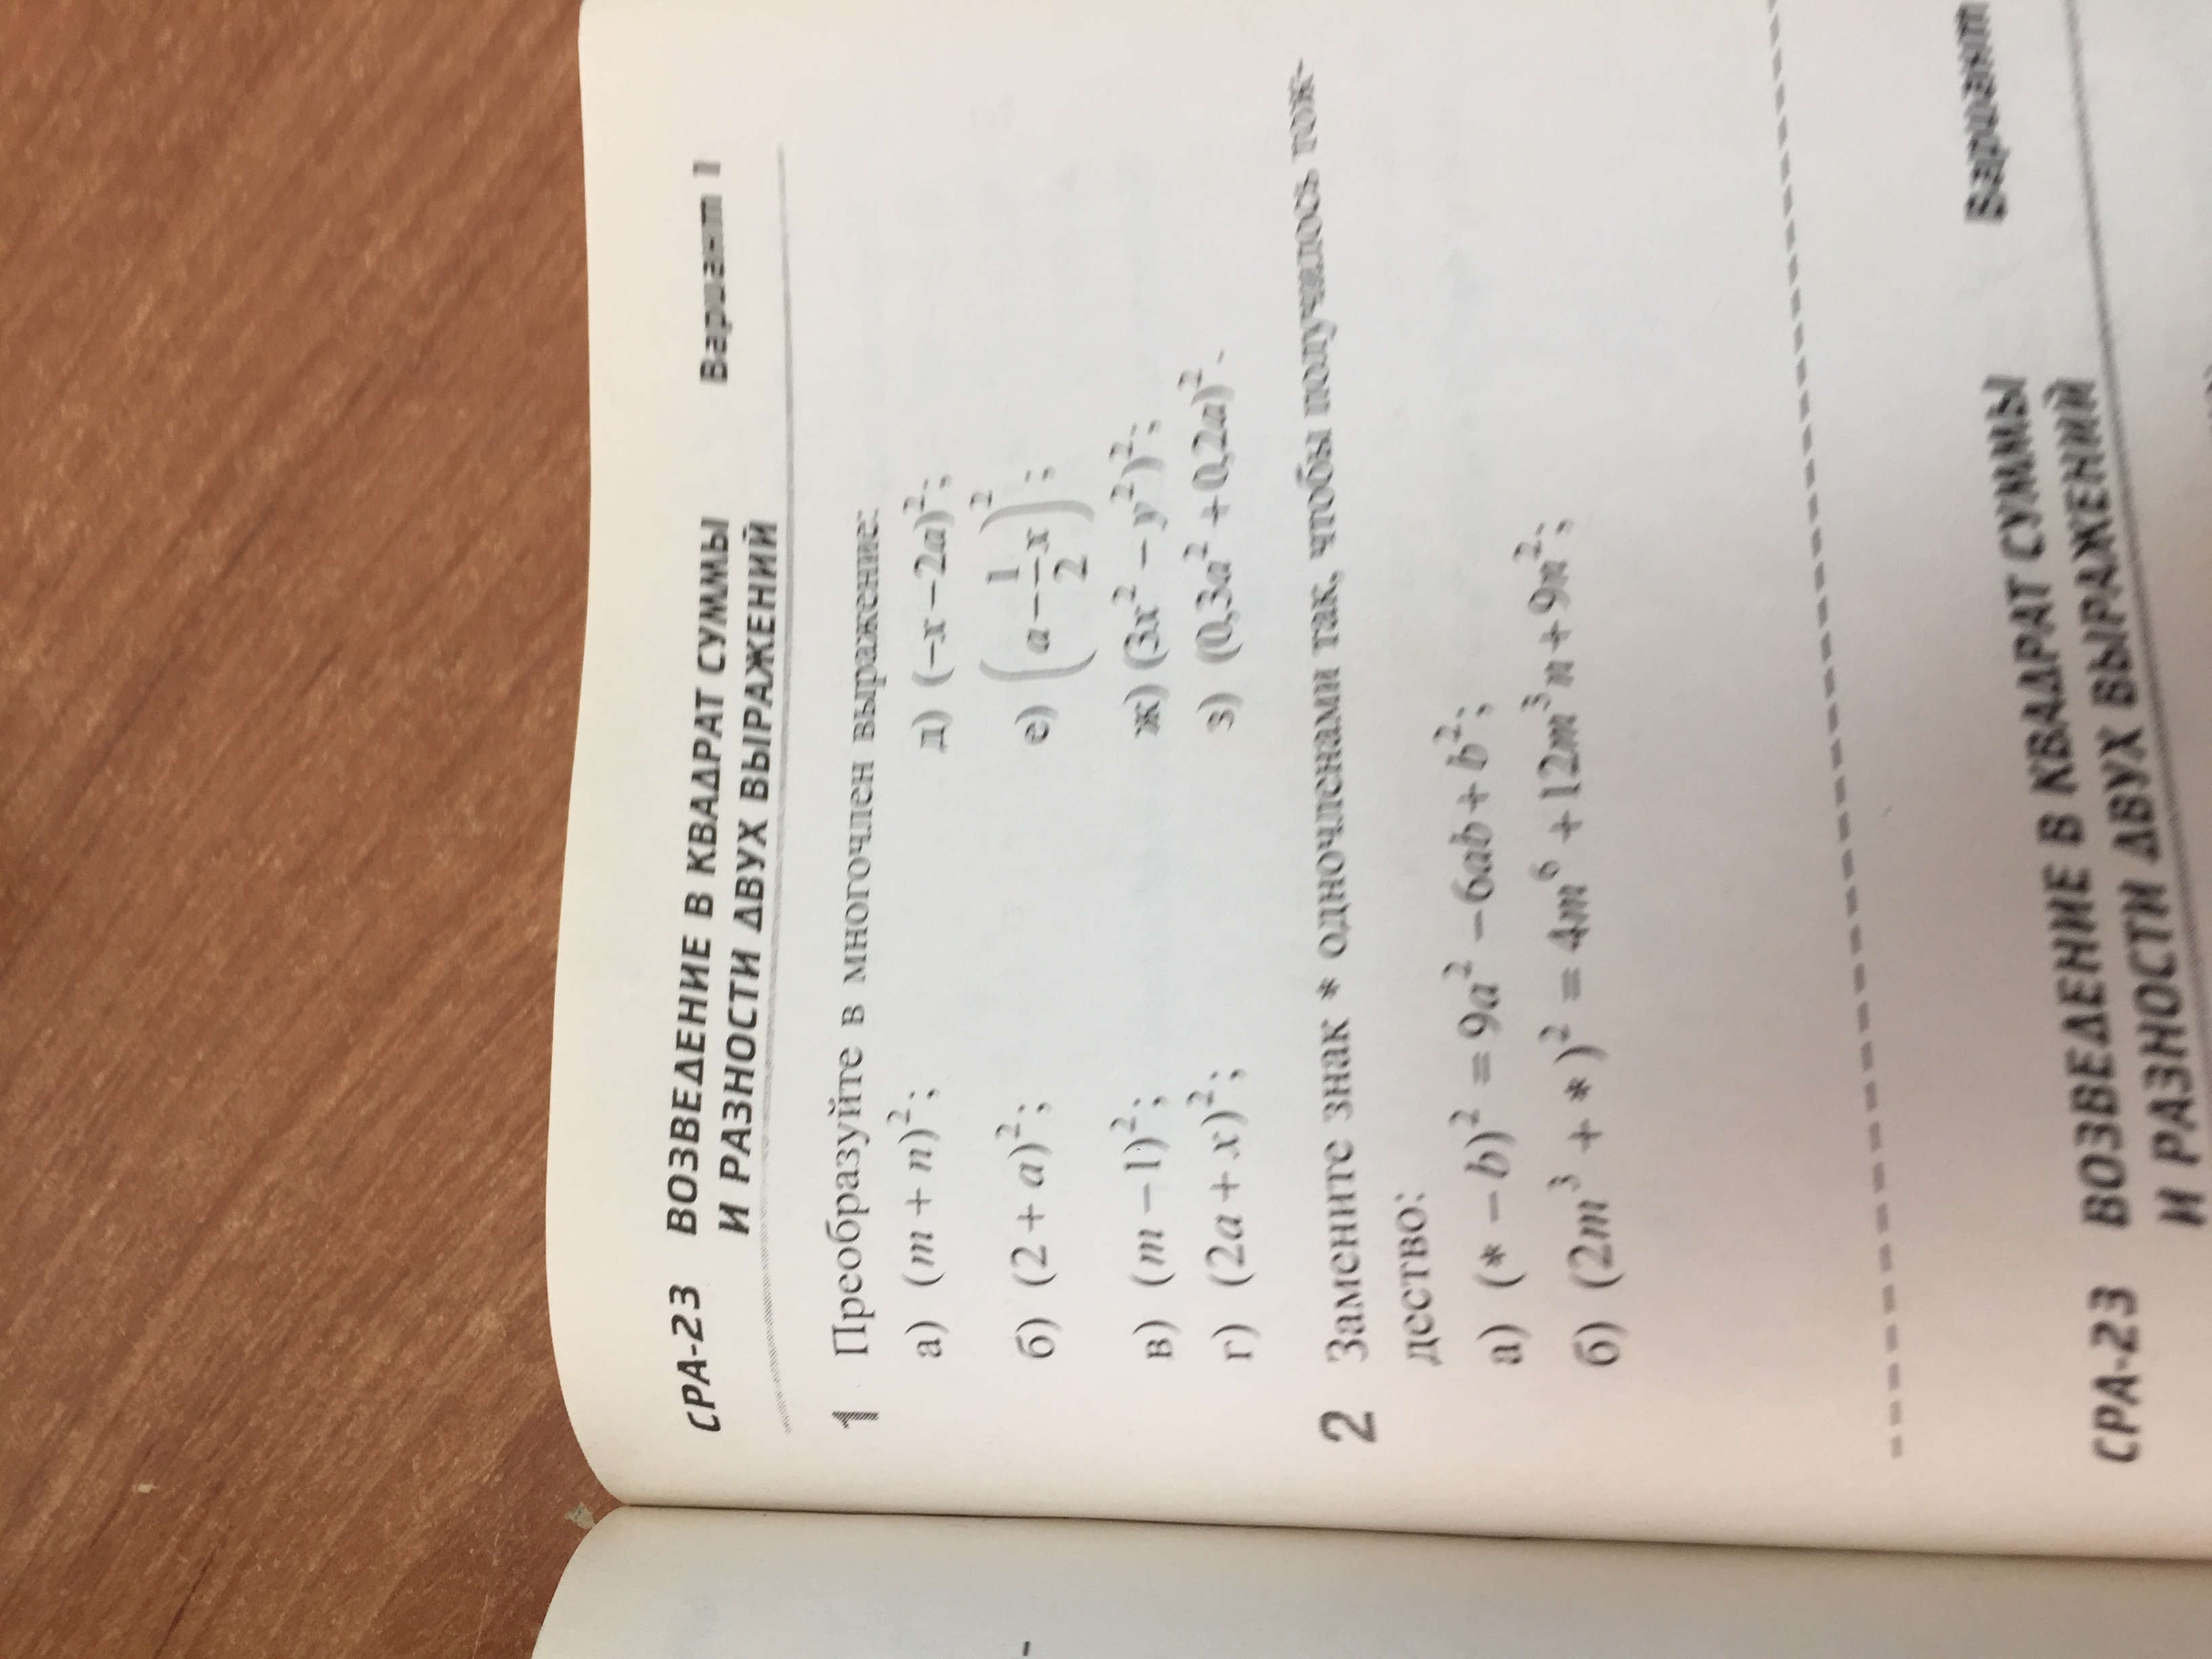 СРА-23 ВОЗВЕДЕНИЕ В КВАДРАТ СУММЫ Вариант 1
И РАЗНОСТИ ДВУХ ВЫРАЖЕНИЙ
1 Преобразуйте в многочлен выражение:
а) (m + n)²; д) (–x – 2a)²;
б) (2 + a)²; е) (a – 1/2 x)²;
в) (m – 1)²; ж) (3x² – y²)²;
г) (2a + x)²; з) (0,3a² + 0,2a)².
2 Замените знак * одночленами так, чтобы получилось тож-
дество:
а) (* – b)² = 9a² – 6ab + b²;
б) (2m³ + *)² = 4m⁶ + 12m³n + 9n²;
СРА-23 ВОЗВЕДЕНИЕ В КВАДРАТ СУММЫ Вариант
И РАЗНОСТИ ДВУХ ВЫРАЖЕНИЙ